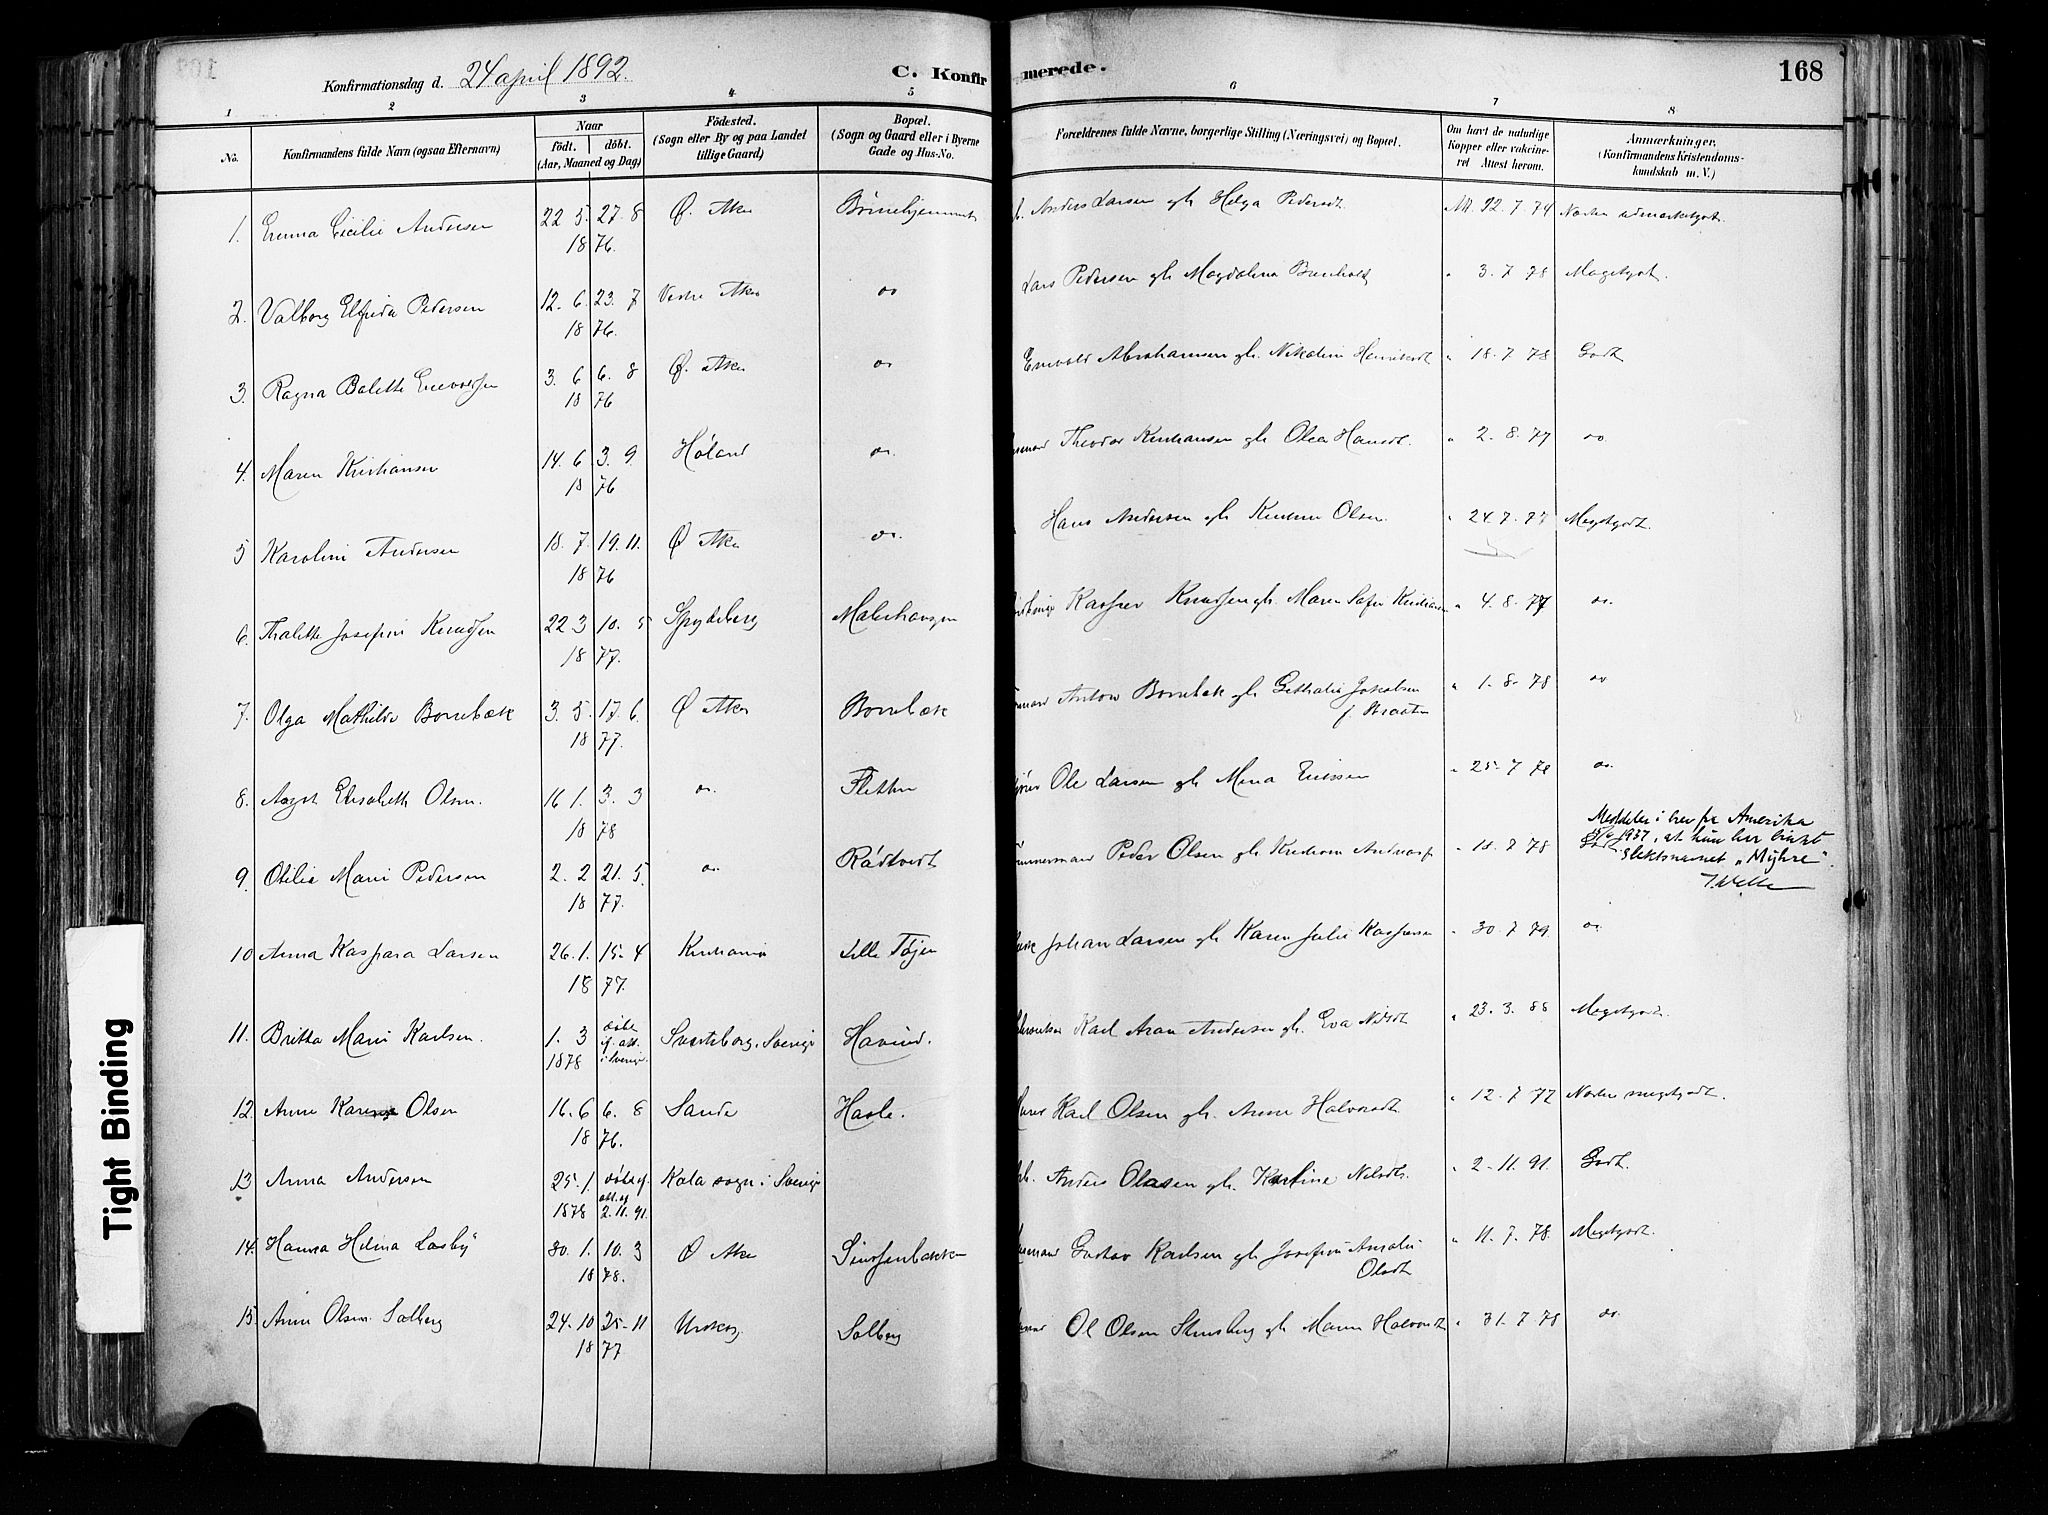 Konfirmationsdag d. 24 april 1892.
C. Konfirmerede.
168
1 2 3 4 5 6 7 8
No.
Konfirmandens fulde Navn (ogsaa Efternavn)
Naar
födt. döbt.
(Aar, Maaned og Dag)
Födested.
(Sogn eller By og paa Landet
tillige Gaard)
Bopæl.
(Sogn og Gaard eller i Byerne
Gade og Hus-No.
Forældrenes fulde Navne, borgerlige Stilling (Næringsvei) og Bopæl.
Om havt de naturlige
Kopper eller vakcine-
ret Attest herom.
Anmærkninger.
(Konfirmandens Kristendoms-
kundskab m. V.)
1. Emma Cicilie Andersen 22 5. 27. 8 1876. Ø. Aker Børnehjemmet Anders Larsen gh Helga Pedersdt 7. 74
2. Valborg Elfrida Pedersen 12. 6. 23. 7 1876. Vestre Aker do Lars Pedersen gh Magdalena 3. 7 78 Megetgodt.
3. Ragna Bolette Enevoldsen 3. 6 6. 8 1876 Ø. Aker do Enevold Abrahamsen gh. Nikoline Henriksdt 18. 7 78 Godt
4. Maren Kristiansen 14. 6 3. 9. 1876 Høland do. Theodor Kristiansen gh Olea Hansdt. 2. 8. 77 do.
5 Karoline Andersen 18. 7. 19. 11. 1876 Ø Aker do. Hans Andersen gh Olsen. 24. 7. 77 Megetgodt.
6. Thalette Josefine Knudsen 22. 3 10. 5 1877. Spydeberg Malerhaugen Kasper Knudsen gh. Maren Sofie Kristiansen 4. 8. 77 do.
7. Olga Mathilde Borrebæk 3. 5. 17. 6. 1877. Ø Aker Borrebæk Anton Borrebæk gh Jakobsen 1. 8. 78 do
f. Braaten
8. Elisabeth Olsen. 16 1. 3. 3 1878 do. Ole Larsen gh Erissen 25. 7 78 do.
9. Otilie Marie Pedersen 2. 2 21. 5. 1877. do. Rødtvedt Tømmermand Peder Olsen gh 18. 7 78 Godt.
Meddeler i brev fra Amerika
1937, at hun har brukt
slektsnavnet „Myhre“.
10 Anna Kaspara Larsen 26. 1. 15. 4 1877. Kristiania Lille Tøjen Johan Larsen gh Karen Julie Kaspersen 30. 7 79. do.
11. Britta Marie Karlsen. 1. 3 1878 døbt
if. att.
i Sverige. Svarteborg. Sverige Hovind. Karl Aron Andersen gh. Eva Nilsdt 23. 3. 88 Megetgodt.
12 Anne Karine Olsen 16. 6 6. 8 1876. Sande Hasle. Karl Olsen gh. Anne Halvorsdt. 12. 7 77 Næsten megetgodt.
13 Anna Andersen 25. 1. 1878 døbt if.
att. af
2. 11. 91. Kola sogn i Sverige Anders Olassen gh. Nilsdt. 2. 11. 91. Godt.
14. Hanna Hilma Losby 30. 1. 10. 3 1878. Ø Aker Sinsenbakken Gustav Karlsen gh Josefine Amalie 11. 7. 78. Megetgodt.
Olsdt
15. Anne Olsen Solberg 24. 10 25. 11 1877 Urskog Solberg Ol Olsen gh Maren Halvorsdt 31. 7 78 do.
Tight Binding